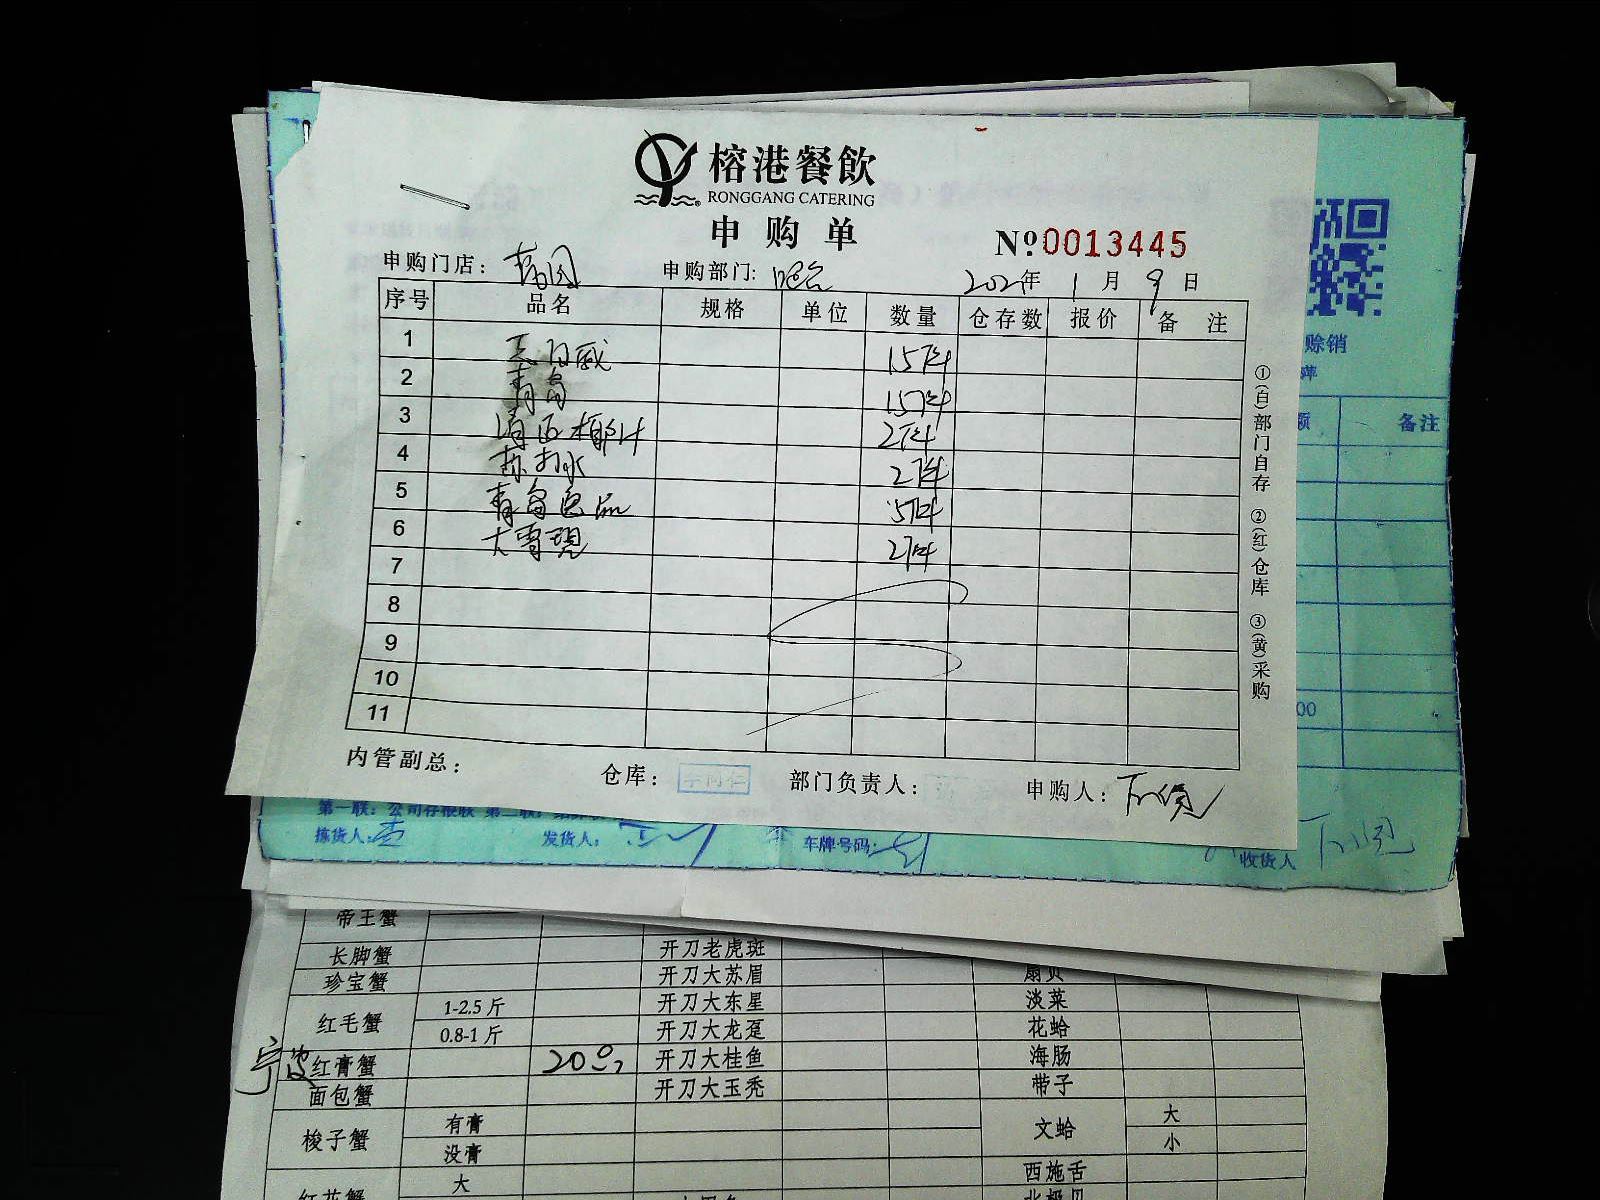 榕港餐飲
RONGGANG CATERING
申购单
Nº0013445
申购门店：
申购部门: 吧台
2021年 1月 9日
序号 品名 规格 单位 数量 仓存数 报价 备注
1 百威 15件
2 青岛 15件
3 椰汁 2件
4 苏打水 2件
5 青岛逸品 5件
6 大雪碧 2件
7
8
9
10
11
①(白)部门自存 ②(红)仓库 ③(黄)采购
内管副总：
仓库：
部门负责人：
申购人：
赊销
萍
额 备注
00
第一联：公司存根联 第二联：
拣货人：
发货人：
车牌号码：
收货人
帝王蟹
长脚蟹 开刀老虎斑
珍宝蟹 开刀大苏眉 扇贝
红毛蟹 1-2.5 斤 开刀大东星 淡菜
0.8-1 斤 开刀大龙趸 花蛤
宁波 红膏蟹 200 开刀大桂鱼 海肠
面包蟹 开刀大玉秃 带子
梭子蟹 有膏 文蛤 大
没膏 小
红花蟹 大 西施舌
北极贝